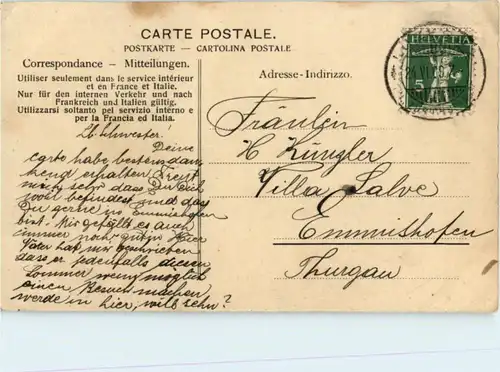 CARTE POSTALE.
POSTKARTE — CARTOLINA POSTALE
Correspondance - Mitteilungen.
Utiliser seulement dans le service intérieur
et en France et Italie.
Nur für den internen Verkehr und nach
Frankreich und Italien gültig.
Utilizzarsi soltanto pel servizio interno e
per la Francia ed Italia.
Adresse-Indirizzo.
HELVETIA
Lb. Schwester!
Deine
Carte habe bestens dan
kend erhalten. Freut
mich sehr dass Du Dich
wohl befindest und dass
Du gerne in Emmishofen
bist. Mir gefällt es auch
immer noch gut hier
Vater hat mir geschrieben
dass er jedenfalls diesen
Sommer wenn möglich
einen Besuch machen
werde in hier, will sehn?
Fräulein
Villa Salve
Emmishofen
Thurgau